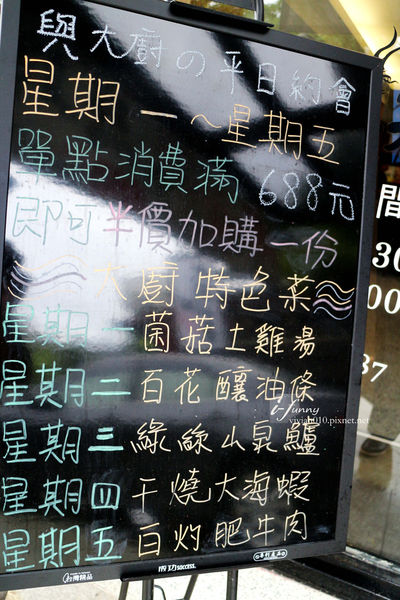 與大廚の平日約會
星期一～星期五
單點消費滿688元
即可半價加購一份
大廚特色菜
星期一菌菇土雞湯
星期二百花釀油條
i-Funny
viviab010.pixnet.net
星期三綠絲山泉鱸
星期四干燒大海蝦
星期五白灼肥牛肉
成功success.
間
30
00
37